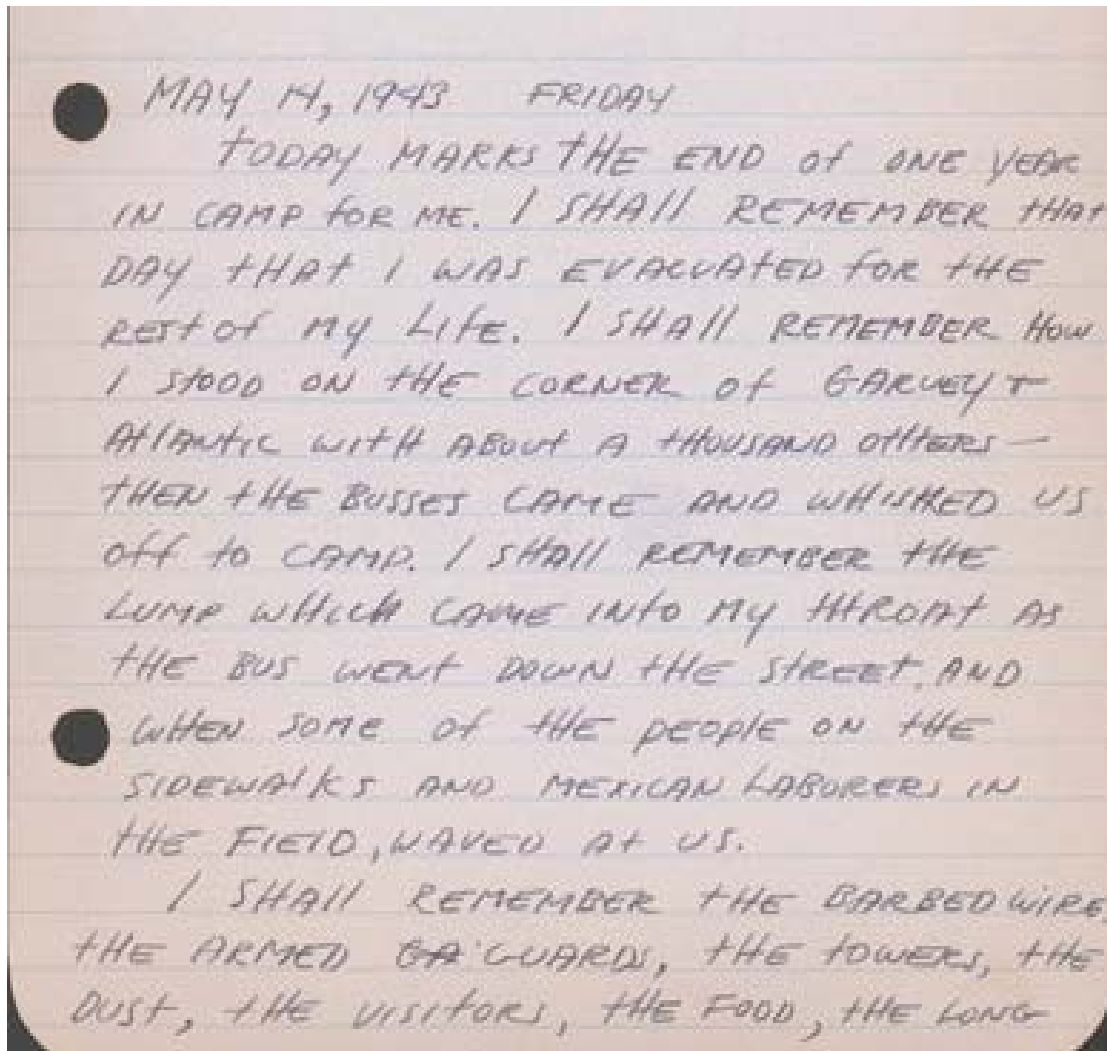 MAY 14, 1943 FRIDAY
TODAY MARKS THE END of ONE YEAR
IN CAMP for ME. I SHAll REMEMBER tHAt
DAY tHAt I WAS EVACUATED for tHE
REST of MY Life. I SHAll REMEMBER HOW
I stOOD ON tHE CORNER of GARVEY +
AtlANtic WitH ABOUt A tHOUSAND OtHERS —
THEN tHE BUSSES CAME AND WHISKED US
Off to CAMP. I SHAll REMEMBER tHE
LUMP WHICH CAME INto MY tHROAt AS
tHE BUS WENt DOWN tHE StREEt, AND
WHEN SOME of tHE pEOplE ON tHE
SIDEWAlKS AND MEXICAN LABORERS IN
tHE FIElD, WAVED At US.
I SHAll REMEMBER tHE BARBED WIRE,
tHE ARMED GUARDS, tHE tOWERS, tHE
DUSt, tHE VISItORS, tHE FOOD, tHE LONG